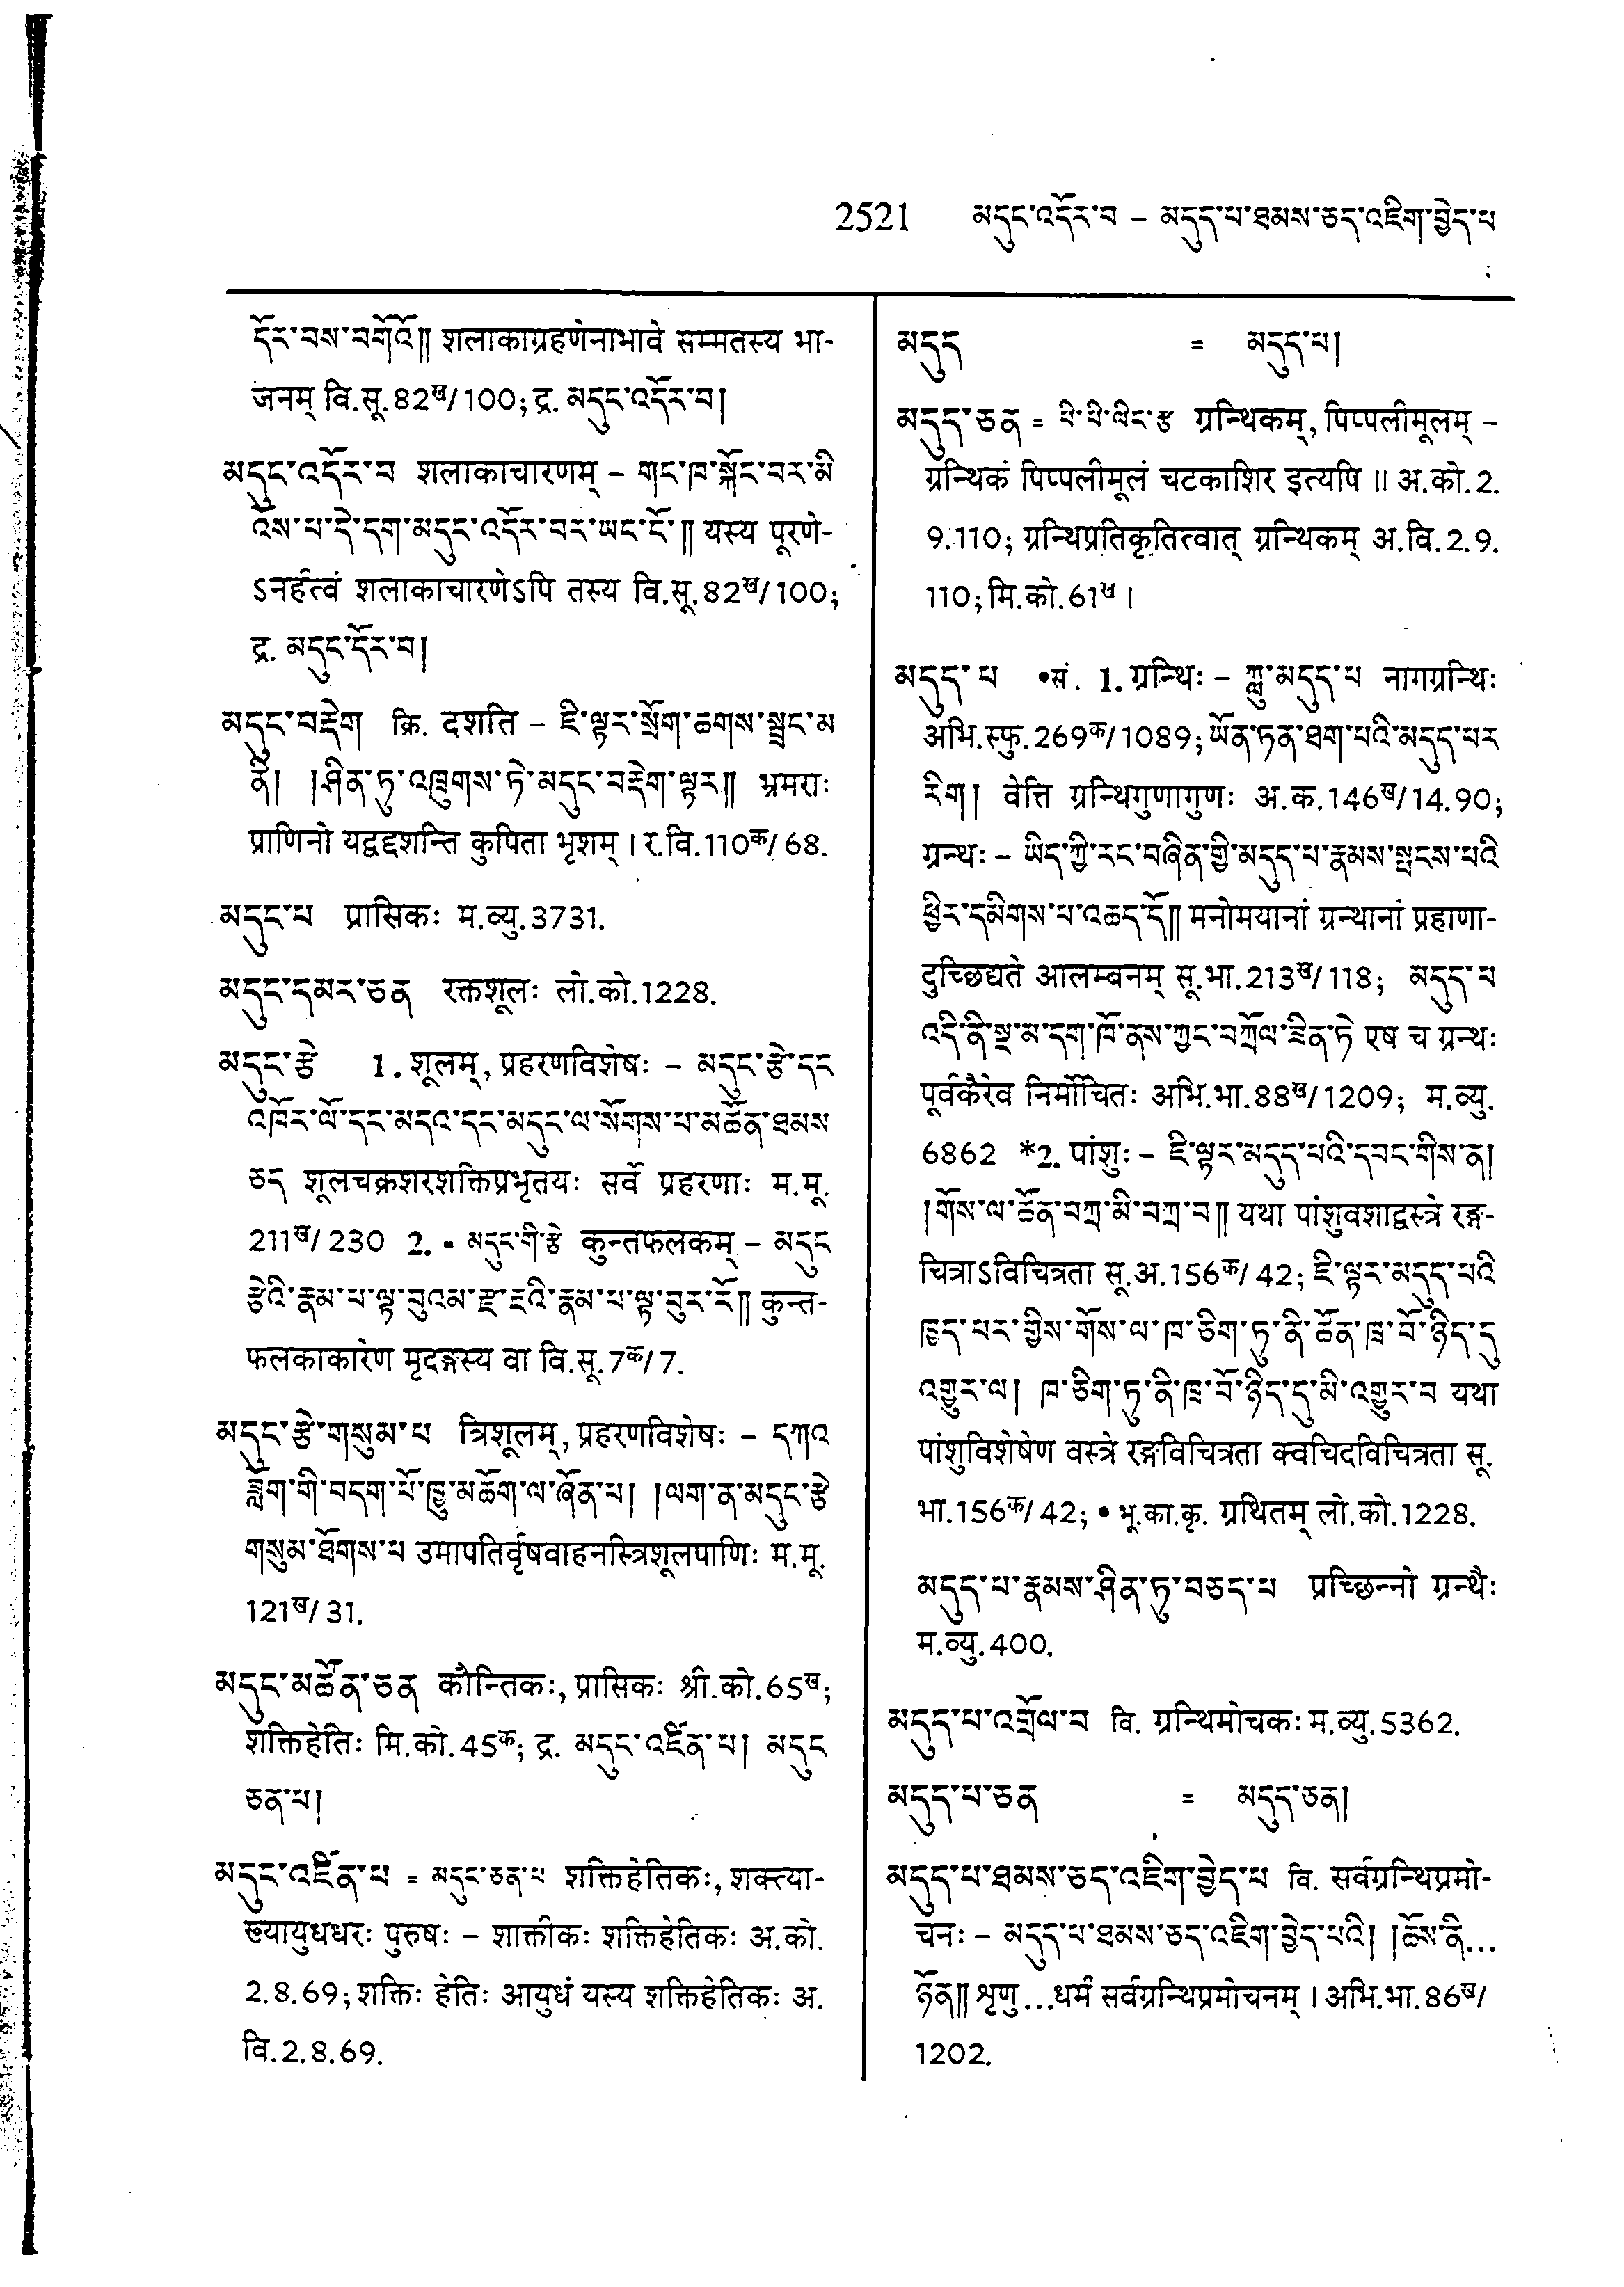 2521 མདུང་འདོར་བ – མདུད་པ་ཐམས་ཅད་འཇིག་བྱེད་པ
དོར་བས་བགོའོ།། शलाकाग्रहणेनाभावे सम्मतस्य भा-
जनम् वि.सू.82ख/100; द्र. མདུང་འདོར་བ།
མདུང་འདོར་བ शलाकाचारणम् – གང་ཁ་སྐོང་བར་མི
འོས་པ་དེ་དག་མདུང་འདོར་བར་ཡང་ངོ་།། यस्य पूरणे-
ऽनर्हत्वं शलाकाचारणेऽपि तस्य वि.सू.82ख/100;
द्र. མདུང་དོར་བ།
མདུང་བརྡེག क्रि. दशति – ཇི་ལྟར་སྲོག་ཆགས་སྦྲང་མ
ནི། །ཤིན་ཏུ་འཁྲུགས་ཏེ་མདུང་བརྡེག་ལྟར།། भ्रमराः
प्राणिनो यद्वद्दशन्ति कुपिता भृशम् । र.वि.110क/68.
མདུང་པ प्रासिकः म.व्यु.3731.
མདུང་དམར་ཅན रक्तशूलः लो.को.1228.
མདུང་རྩེ 1. शूलम्, प्रहरणविशेषः – མདུང་རྩེ་དང
འཁོར་ལོ་དང་མདའ་དང་མདུང་ལ་སོགས་པ་མཚོན་ཐམས
ཅད शूलचक्रशरशक्तिप्रभृतयः सर्वे प्रहरणाः म.मू.
211ख/230 2. = མདུང་གི་རྩེ कुन्तफलकम् – མདུང
རྩེའི་རྣམ་པ་ལྟ་བུའམ་རྫ་རྔའི་རྣམ་པ་ལྟ་བུར་རོ།། कुन्त-
फलकाकारेण मृदङ्गस्य वा वि.सू.7क/7.
མདུང་རྩེ་གསུམ་པ त्रिशूलम्, प्रहरणविशेषः – དཀའ
ཟློག་གི་བདག་པོ་ཁྱུ་མཆོག་ལ་ཞོན་པ། །ལག་ན་མདུང་རྩེ
གསུམ་ཐོགས་པ उमापतिर्वृषवाहनस्त्रिशूलपाणिः म.मू.
121ख/31.
མདུང་མཚོན་ཅན कौन्तिकः, प्रासिकः श्री.को.65ख;
शक्तिहेतिः मि.को.45क; द्र. མདུང་འཛིན་པ། མདུང
ཅན་པ།
མདུང་འཛིན་པ = མདུང་ཅན་པ शक्तिहेतिकः, शक्त्या-
ख्यायुधधरः पुरुषः – शाक्तीकः शक्तिहेतिकः अ.को.
2.8.69; शक्तिः हेतिः आयुधं यस्य शक्तिहेतिकः अ.
वि.2.8.69.
མདུད = མདུད་པ།
མདུད་ཅན = པི་པི་ལིང་རྩ ग्रन्थिकम्, पिप्पलीमूलम् –
ग्रन्थिकं पिप्पलीमूलं चटकाशिर इत्यपि ॥ अ.को.2.
9.110; ग्रन्थिप्रतिकृतित्वात् ग्रन्थिकम् अ.वि.2.9.
110; मि.को.61ख ।
མདུད་པ •सं. 1. ग्रन्थिः – ཀླུ་མདུད་པ नागग्रन्थिः
अभि.स्फु.269क/1089; ཡོན་ཏན་ཐག་པའི་མདུད་པར
རིག། वेत्ति ग्रन्थिगुणागुणः अ.क.146ख/14.90;
ग्रन्थः – ཡིད་ཀྱི་རང་བཞིན་གྱི་མདུད་པ་རྣམས་སྤངས་པའི
ཕྱིར་དམིགས་པ་འཆད་དོ།། मनोमयानां ग्रन्थानां प्रहाणा-
दुच्छिद्यते आलम्बनम् सू.भा.213ख/118; མདུད་པ
འདི་ནི་སྔ་མ་དག་ཁོ་ནས་ཀྱང་བཀྲོལ་ཟིན་ཏེ एष च ग्रन्थः
पूर्वकैरेव निर्मोचितः अभि.भा.88ख/1209; म.व्यु.
6862 *2. पांशुः – ཇི་ལྟར་མདུད་པའི་དབང་གིས་ན།
།གོས་ལ་ཚོན་བཀྲ་མི་བཀྲ་བ།། यथा पांशुवशाद्वस्त्रे रङ्ग-
चित्राऽविचित्रता सू.अ.156क/42; ཇི་ལྟར་མདུད་པའི
ཁྱད་པར་གྱིས་གོས་ལ་ཁ་ཅིག་ཏུ་ནི་ཚོན་ཁྲ་བོ་ཉིད་དུ
འགྱུར་ལ། ཁ་ཅིག་ཏུ་ནི་ཁྲ་བོ་ཉིད་དུ་མི་འགྱུར་བ यथा
पांशुविशेषेण वस्त्रे रङ्गविचित्रता क्वचिदविचित्रता सू.
भा.156क/42; • भू.का.कृ. ग्रथितम् लो.को.1228.
མདུད་པ་རྣམས་ཤིན་ཏུ་བཅད་པ प्रच्छिन्नो ग्रन्थैः
म.व्यु.400.
མདུད་པ་འགྲོལ་བ वि. ग्रन्थिमोचकः म.व्यु.5362.
མདུད་པ་ཅན = མདུད་ཅན།
མདུད་པ་ཐམས་ཅད་འཇིག་བྱེད་པ वि. सर्वग्रन्थिप्रमो-
चनः – མདུད་པ་ཐམས་ཅད་འཇིག་བྱེད་པའི། །ཆོས་ནི...
ཉོན།། शृणु...धर्मं सर्वग्रन्थिप्रमोचनम् । अभि.भा.86ख/
1202.